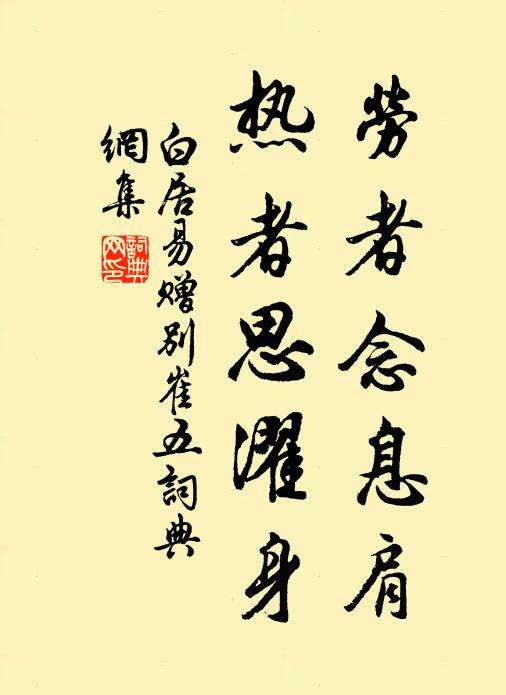 劳者念息肩
热者思濯身
白居易赠别崔五詞典
網集
詞典
网印